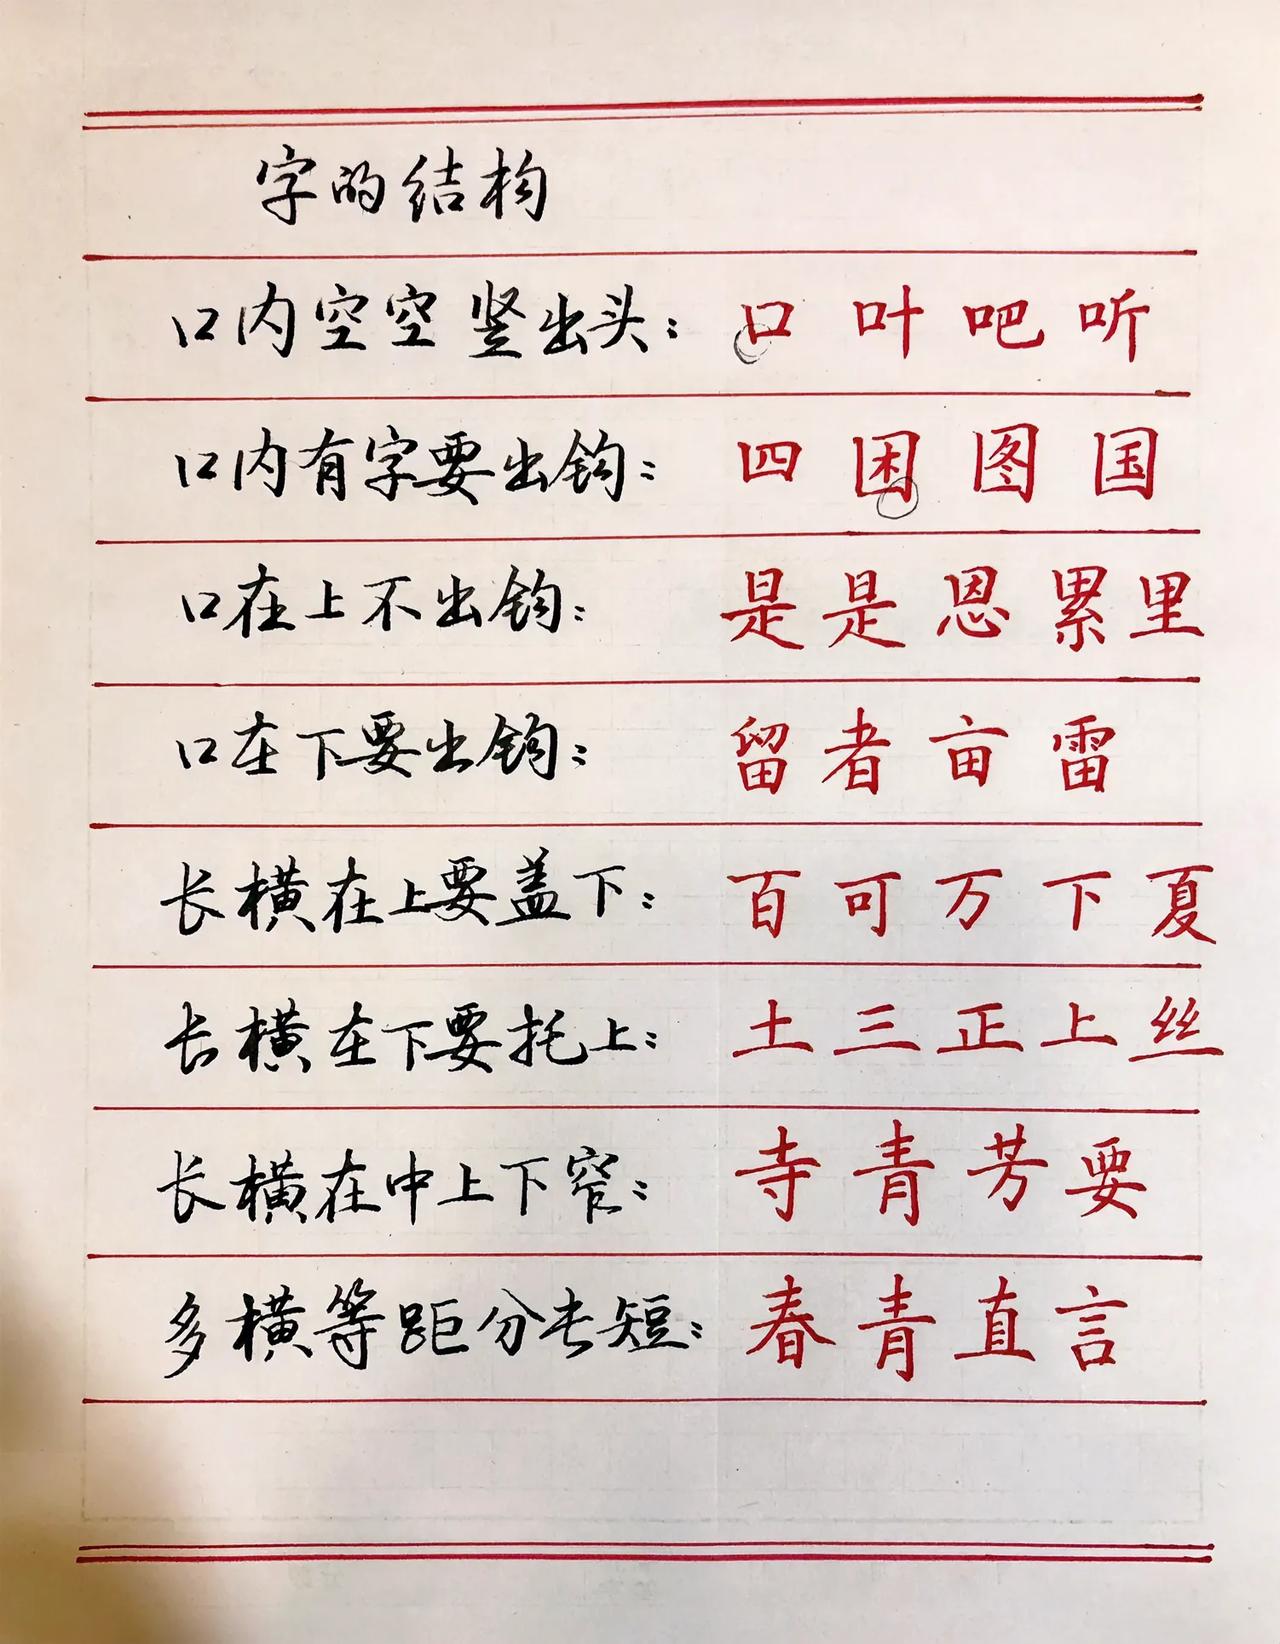 字的结构
口内空空竖出头：口 叶 吧 听
口内有字要出钩：四 困 图 国
口在上不出钩：是 是 恩 累 里
口在下要出钩：留 者 亩 雷
长横在上要盖下：百 可 万 下 夏
长横在下要托上：土 三 正 上 丝
长横在中上下窄：寺 青 芳 要
多横等距分长短：春 青 直 言